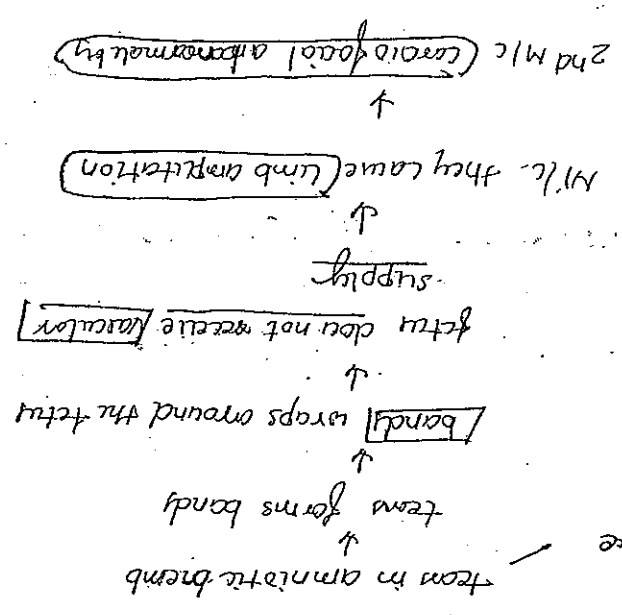 tears in amniotic memb
tears forms bands
bands wraps around the fetus
fetus does not receive vascular
supply
M/c. they cause limb amputation
2nd M/c